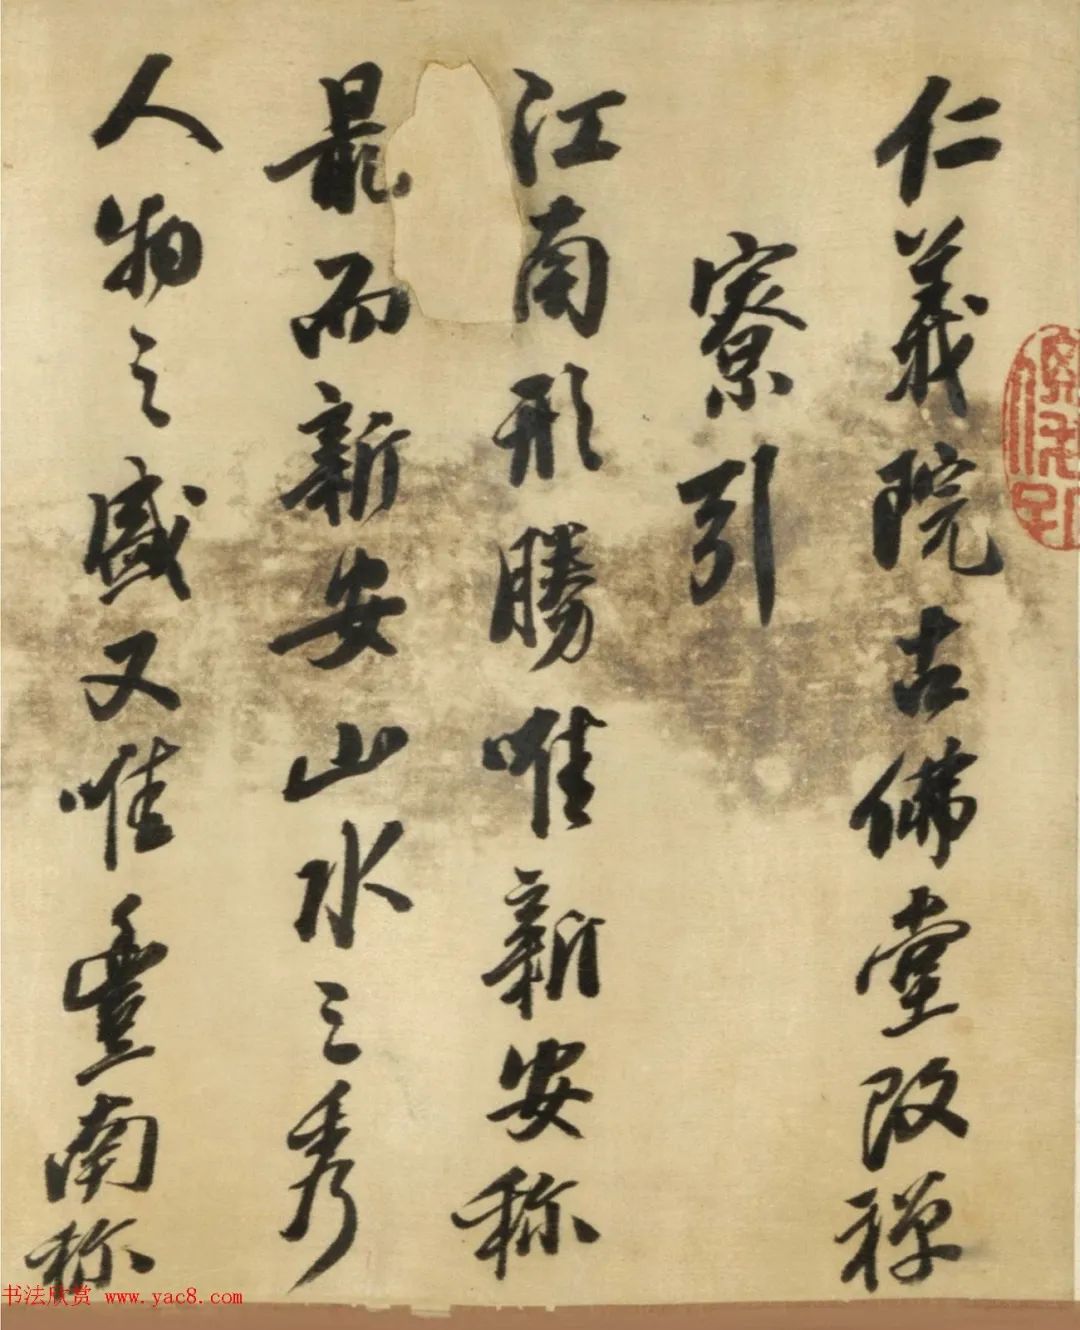 仁義院古佛堂改禪
寮引
江南形勝唯新安称
最而新安山水之秀
人物之盛又唯豊南称
书法欣赏 www.yac8.com